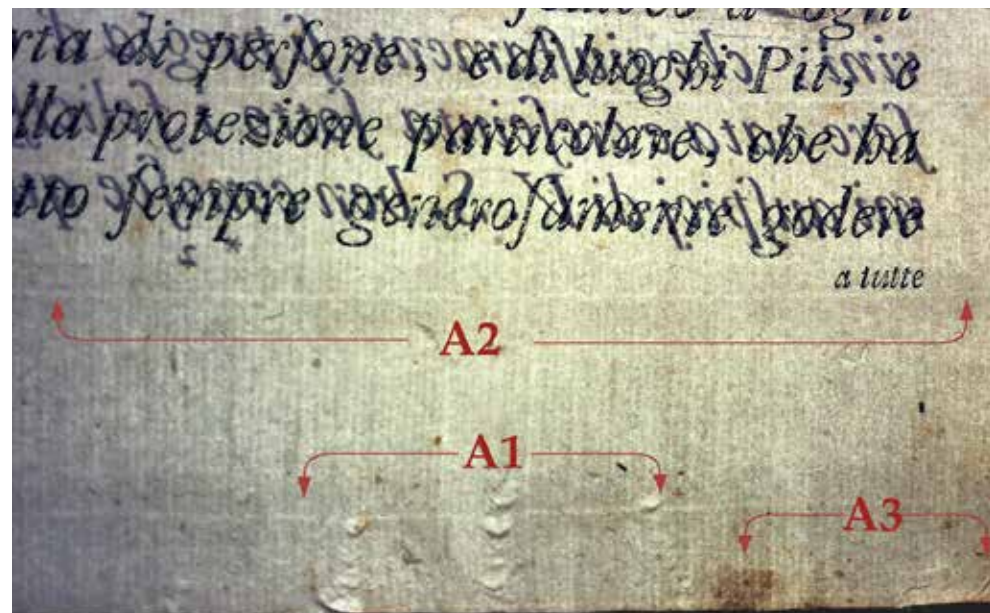 ogni
rta di perſone, e di luoghi Pii, e
lla protezione particolare, che ha
tto ſempre generoſamente godere
a tutte
A2
A1
A3